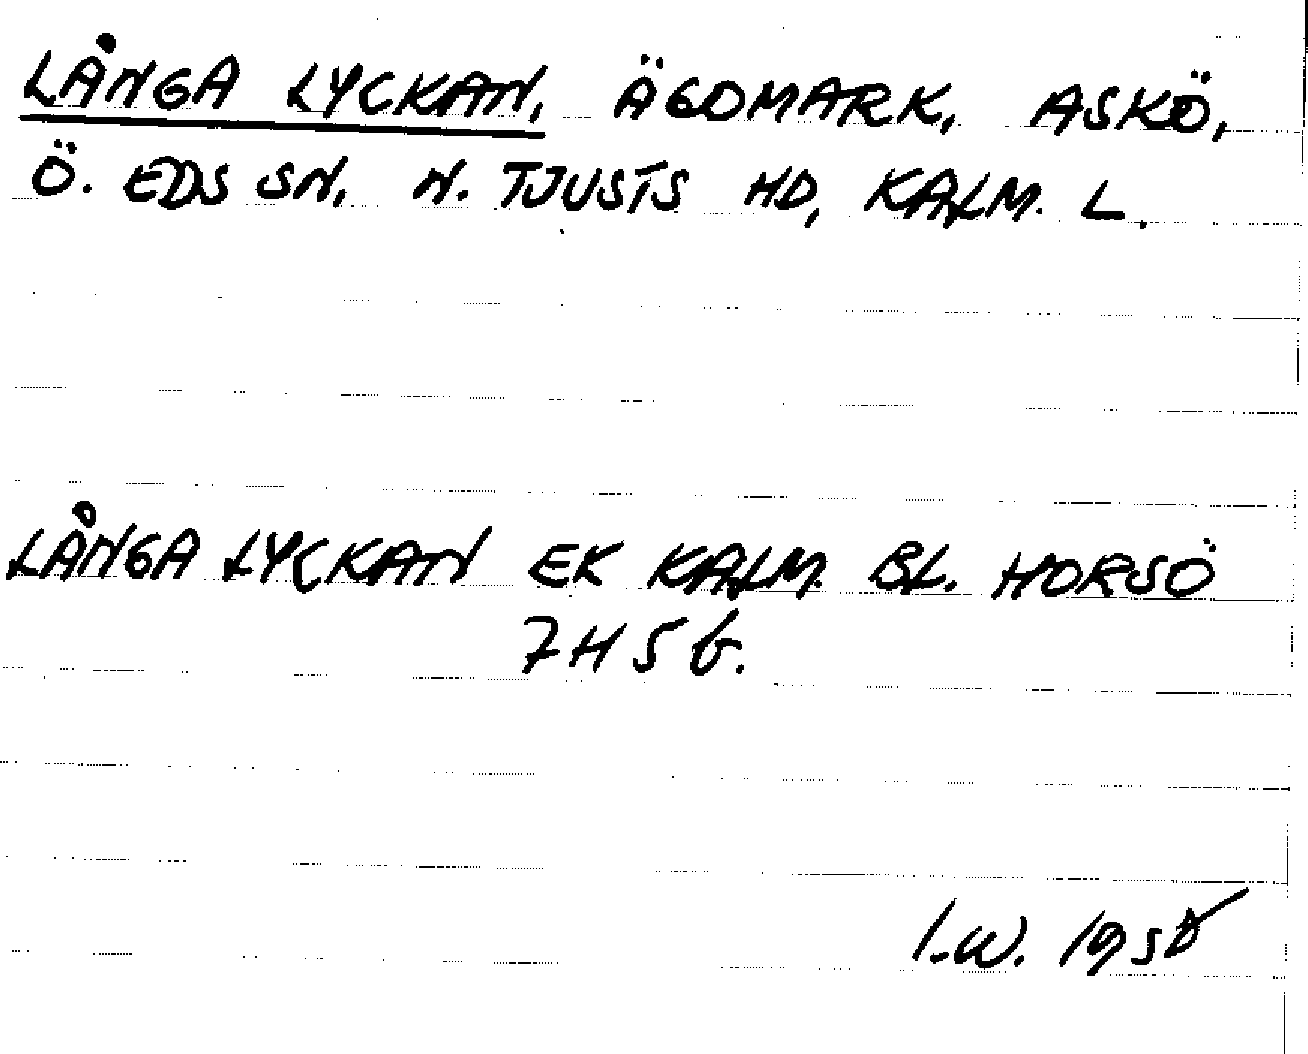 LÅNGA LYCKAN, ÄGOMARK, ASKÖ,
Ö. EDS SN, N. TJUSTS HD, KALM. L.
LÅNGA LYCKAN EK KALM. BL. HORSÖ
7H 5 b.
I.W.